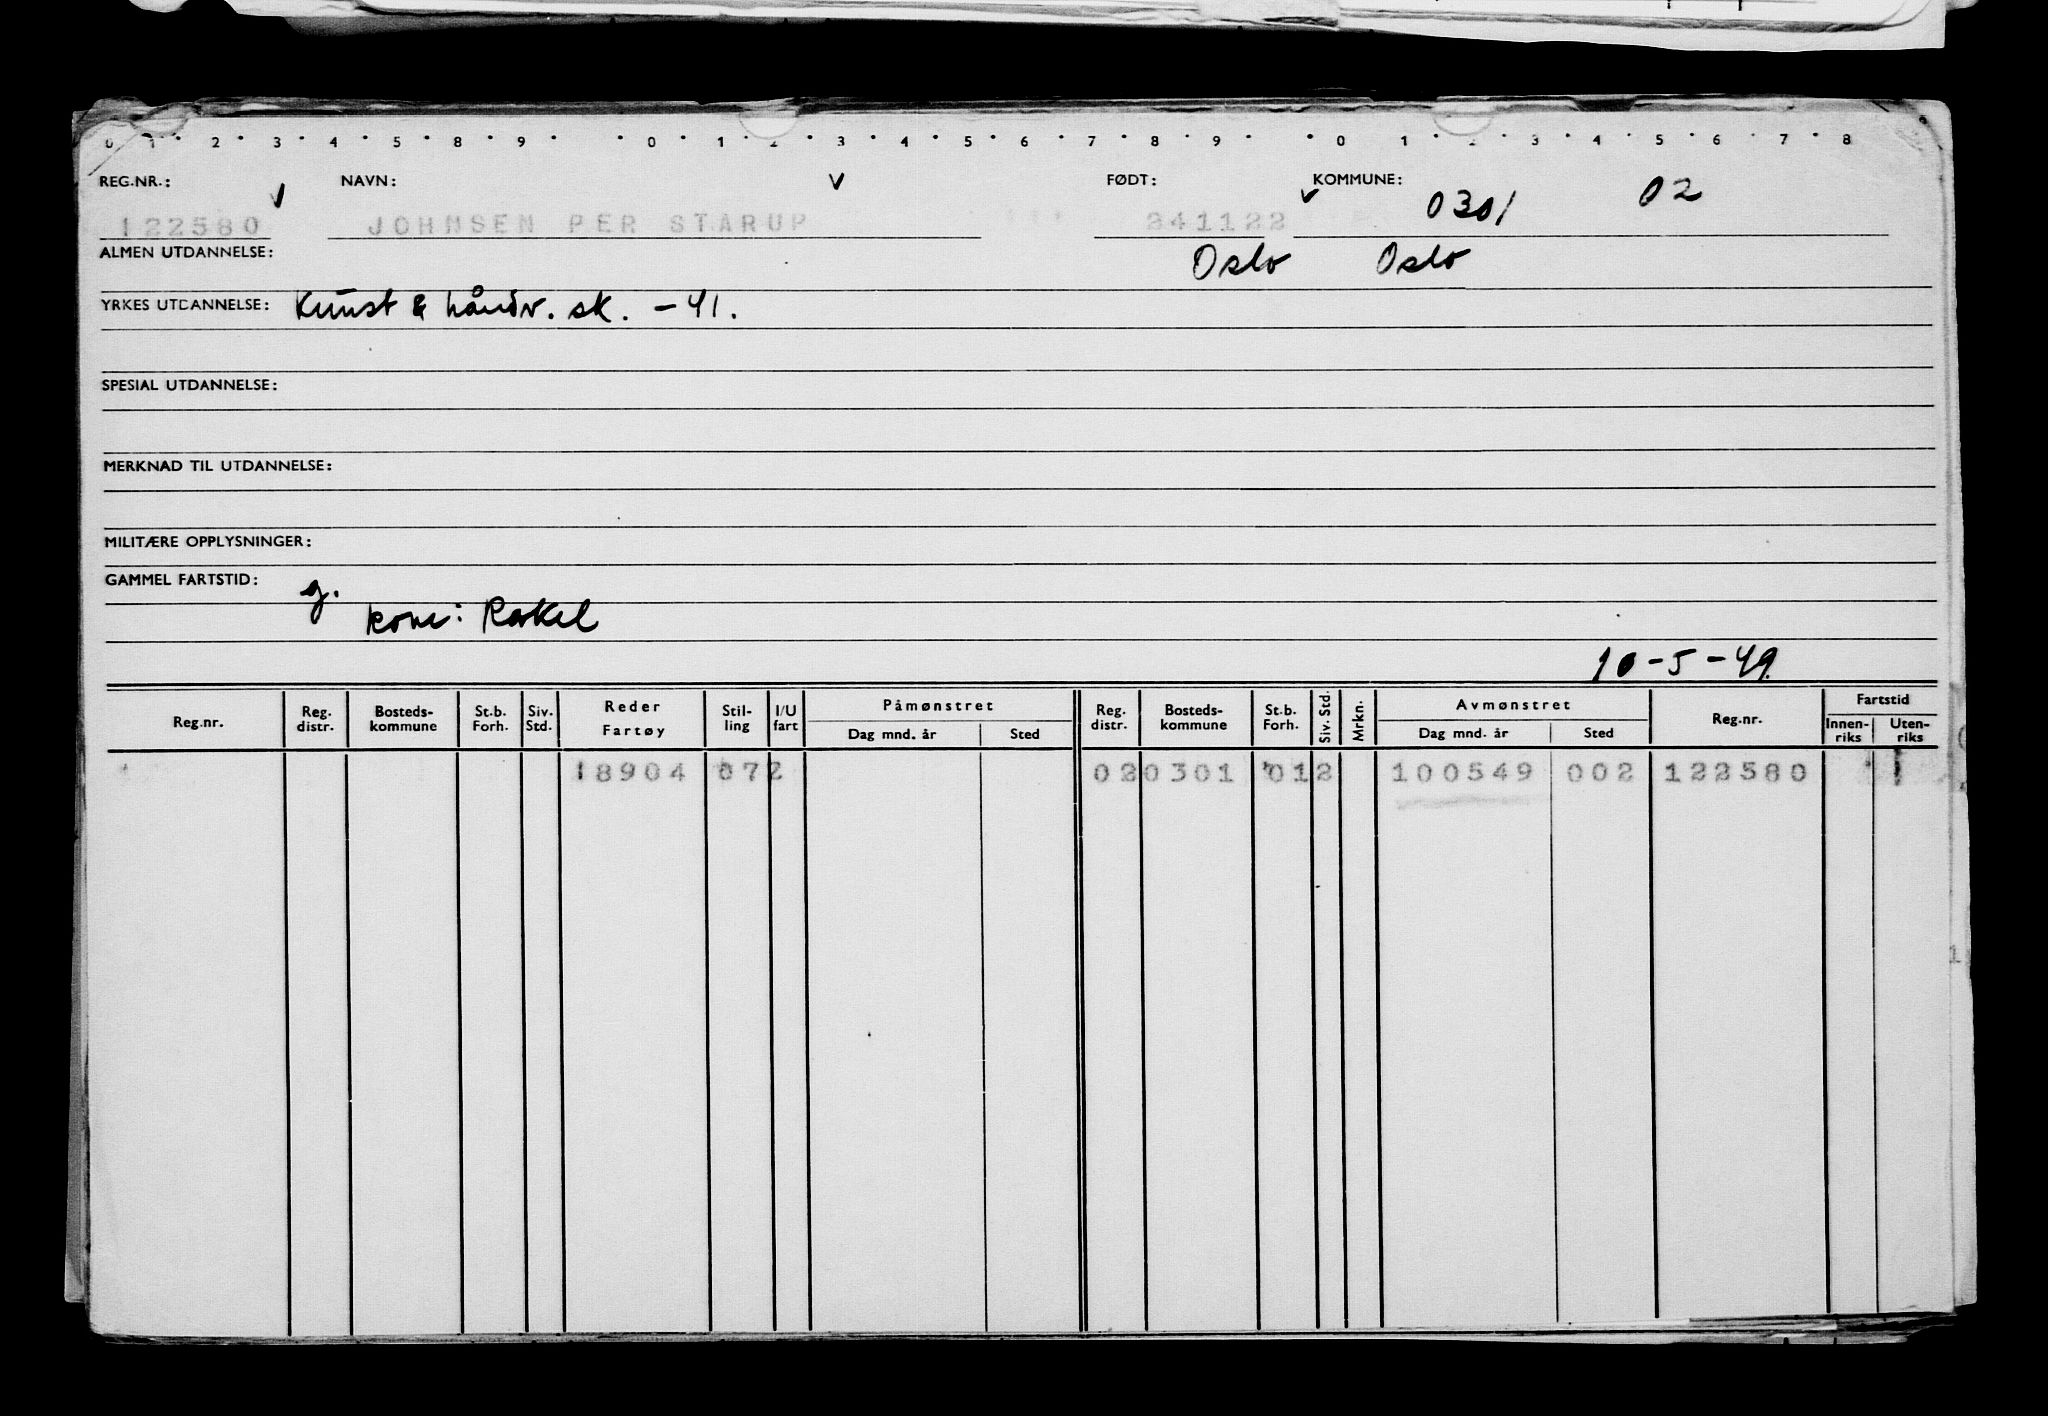 0 1 2 3 4 5 6 7 8 9 0 1 2 3 4 5 6 7 8 9 0 1 2 3 4 5 6 7 8
REG.NR.: NAVN: FØDT: KOMMUNE:
0301 02
122580 JOHNSEN PER STARUP 241122
ALMEN UTDANNELSE: Oslo Oslo
YRKES UTDANNELSE: Kunst & håndv. sk. - 41.
SPESIAL UTDANNELSE:
MERKNAD TIL UTDANNELSE:
MILITÆRE OPPLYSNINGER:
GAMMEL FARTSTID: g.
kone: Rakel
10-5-49.
Reg.nr. Reg. distr. Bosteds-kommune St.b. Forh. Siv. Std. Reder Fartøy Stil-ling I/U fart Påmønstret Dag mnd. år Sted Reg. distr. Bosteds-kommune St.b. Forh. Siv. Std. Mrkn. Avmønstret Dag mnd. år Sted Reg.nr. Fartstid Innen-riks Uten-riks
18904 072 020301 012 100549 002 122580 1